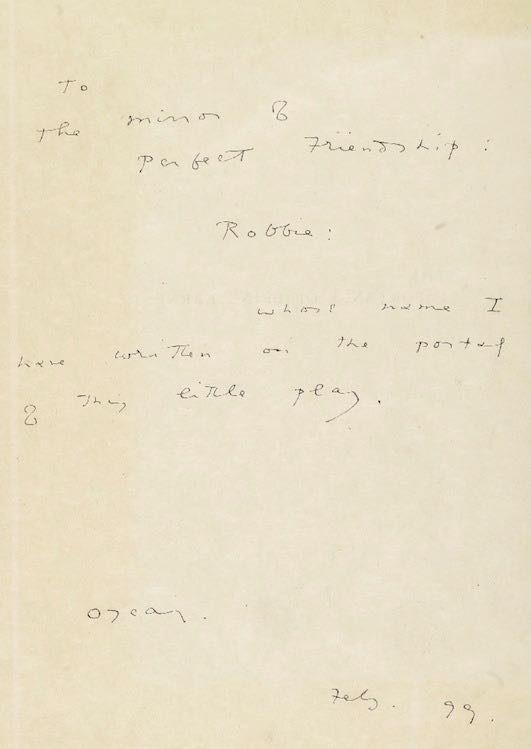 To
the mirror of
perfect Friendship:
Robbie:
whose name I
have written on the portal
of this little play.
Oscar.
Feb. 99.